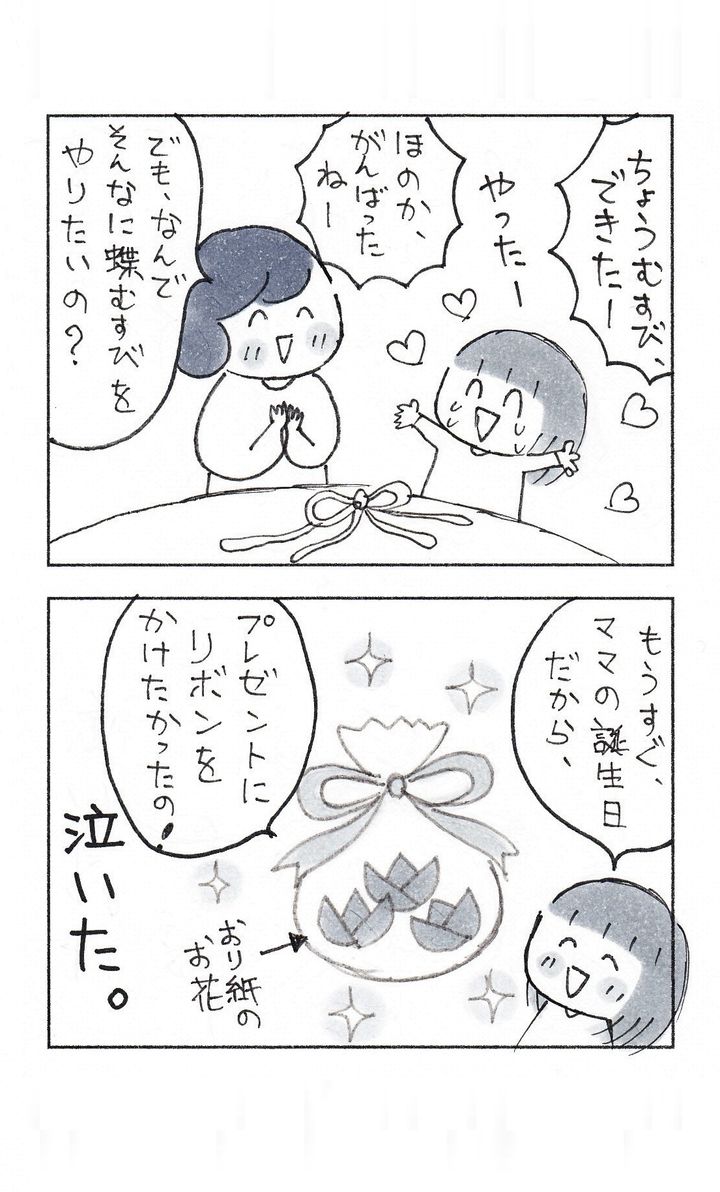 ちょうむすび、
できたー
やったー
ほのか、
がんばった
ねー
でも、なんで
そんなに蝶むすびを
やりたいの？
もうすぐ、
ママの誕生日
だから、
プレゼントに
リボンを
かけたかったの！
おり紙の
お花
泣いた。